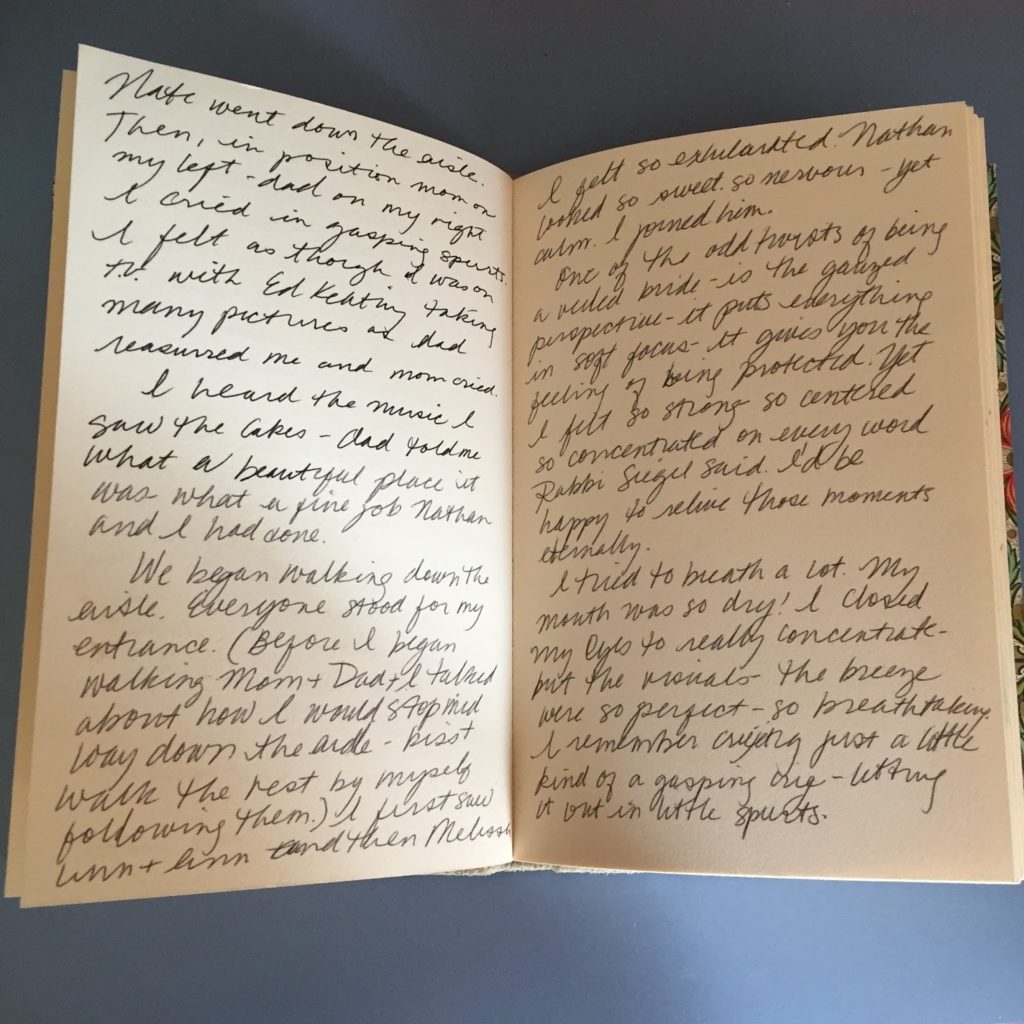 Nate went down the aisle.
Then, in position mom on
my left - dad on my right
I cried in gasping spurts.
I felt as though I was on
T.V. with Ed Keating taking
many pictures as dad
reasurred me and mom cried.
I heard the music I
saw the cakes - dad told me
what a beautiful place it
was what a fine job Nathan
and I had done.
We began walking down the
aisle. Everyone stood for my
entrance. (Before I began
walking Mom + Dad + I talked
about how I would stop mid
way down the aisle - kiss +
walk the rest by myself
following them.) I first saw
and then Melissa
I felt so exhilarated. Nathan
looked so sweet. so nervous - yet
calm. I joined him.
One of the odd twists of being
a veiled bride - is the gauzed
perspective - it puts everything
in soft focus - It gives you the
feeling of being protected. Yet
I felt so strong so centered
so concentrated on every word
Rabbi Siegel said. I'd be
happy to relive those moments
eternally.
I tried to breath a lot. My
mouth was so dry! I closed
my eyes to really concentrate -
but the visuals - the breeze
were so perfect - so breathtaking.
I remember crying just a little
kind of a gasping cry - letting
it out in little spurts.